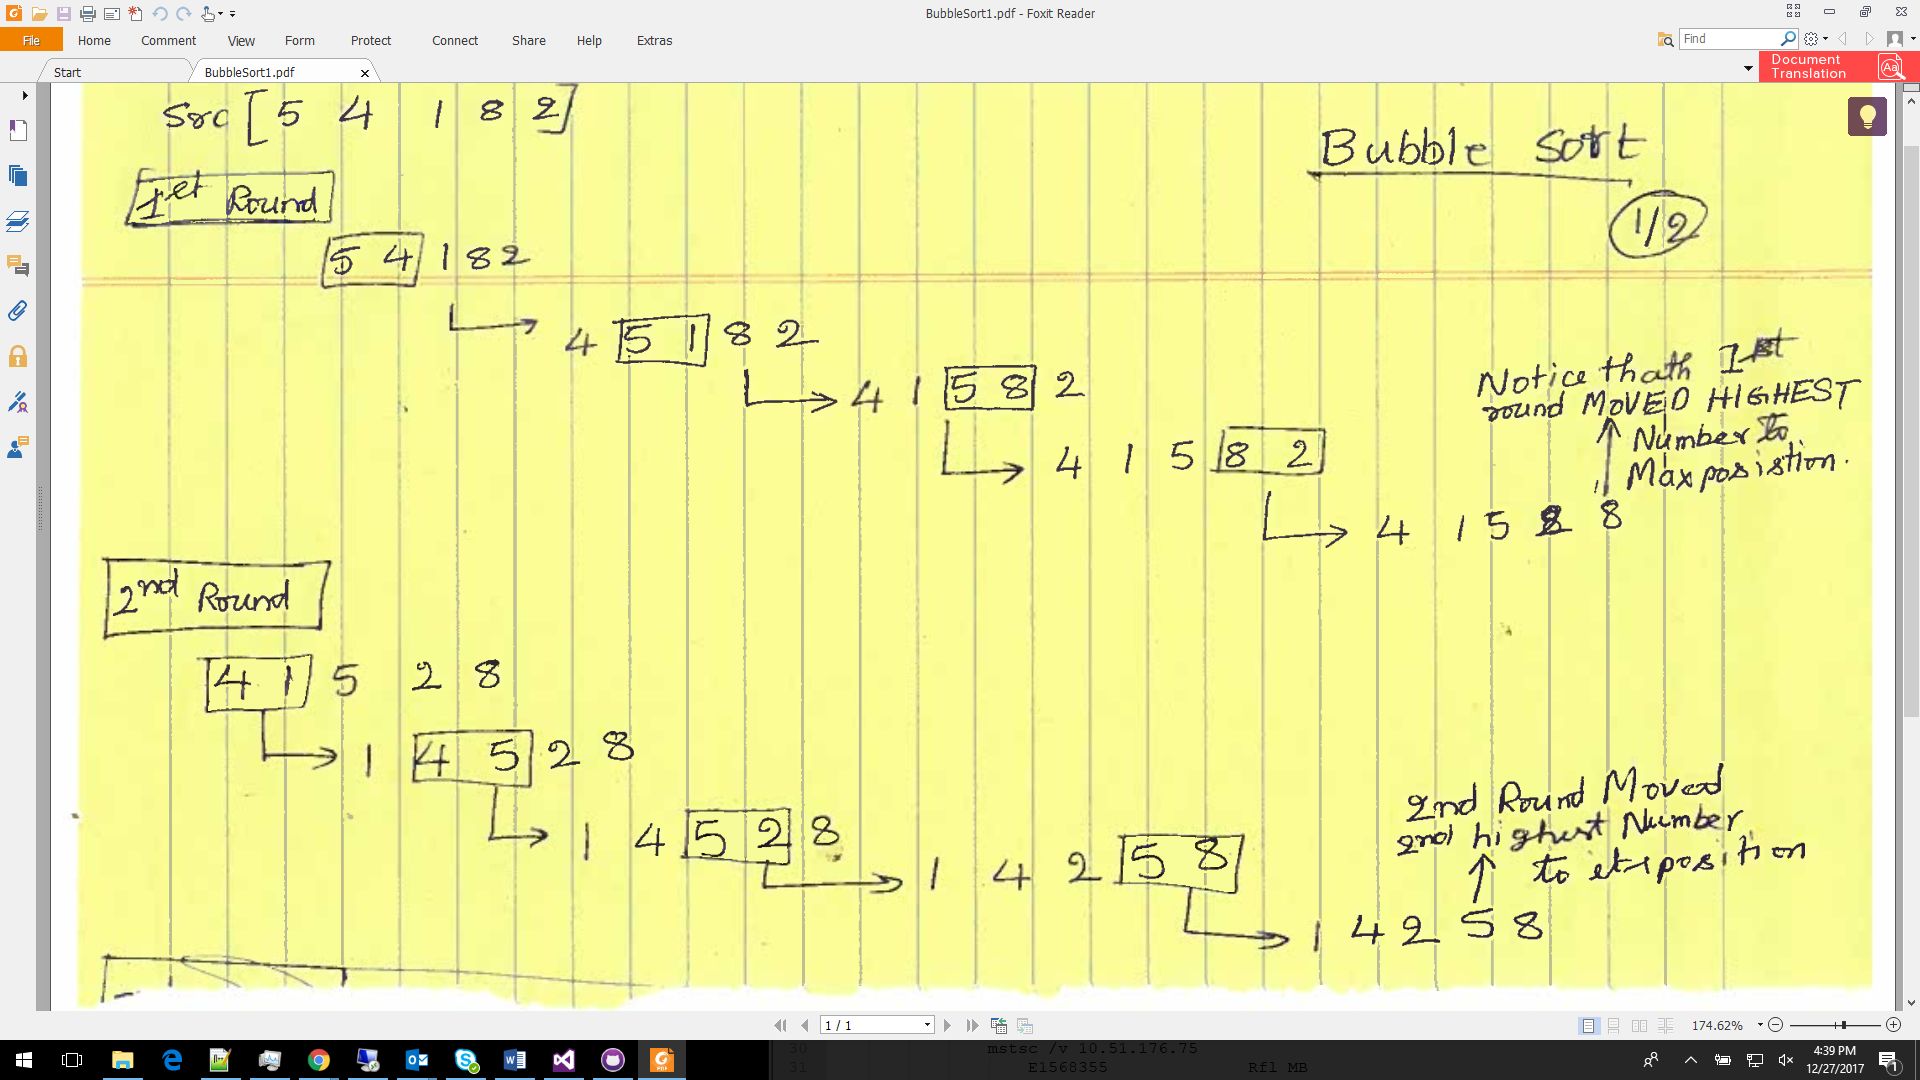 BubbleSort1.pdf - Foxit Reader
File Home Comment View Form Protect Connect Share Help Extras
Find
Start
BubbleSort1.pdf
Document
Translation
Src [5 4 1 8 2]
Bubble Sort
1st Round
1/2
5 4 1 8 2
4 5 1 8 2
4 1 5 8 2
4 1 5 8 2
Notice thath 1st
round MOVED HIGHEST
Number to
Max posistion.
4 1 5 2 8
2nd Round
4 1 5 2 8
1 4 5 2 8
1 4 5 2 8
1 4 2 5 8
2nd Round Moved
2nd highest Number
to position
1 4 2 5 8
1 / 1
174.62%
30 mstsc /v 10.51.176.75
31 E1568355 Rfl MB
4:39 PM
12/27/2017
1